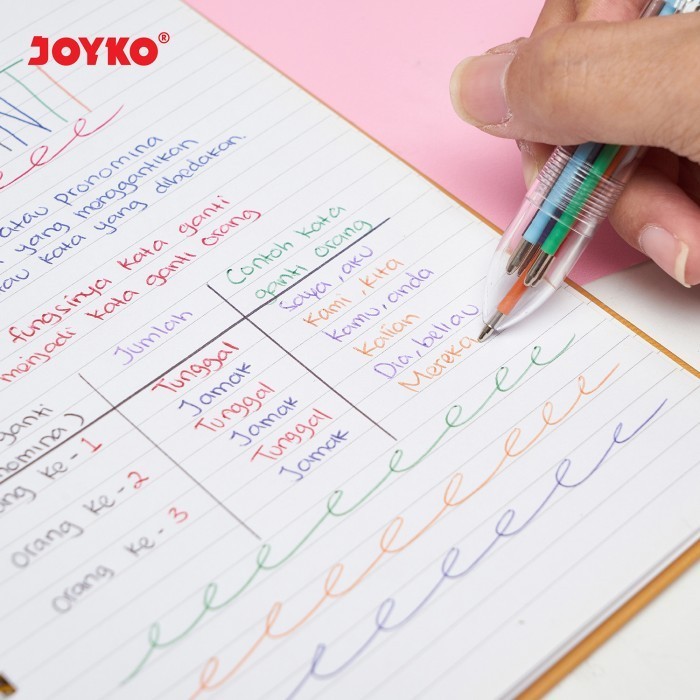 JOYKO®
NTI
atau pronomina
yang menggantikan
kata yang dibedakan.
fungsinya kata ganti
menjadi kata ganti orang
ganti
Jumlah
Contoh kata
ganti orang
orang ke-1
Tunggal
Saya, aku
Jamak
Kami, kita
orang ke-2
Tunggal
Kamu, anda
Jamak
Kalian
orang ke-3
Tunggal
Dia, beliau
Jamak
Mereka